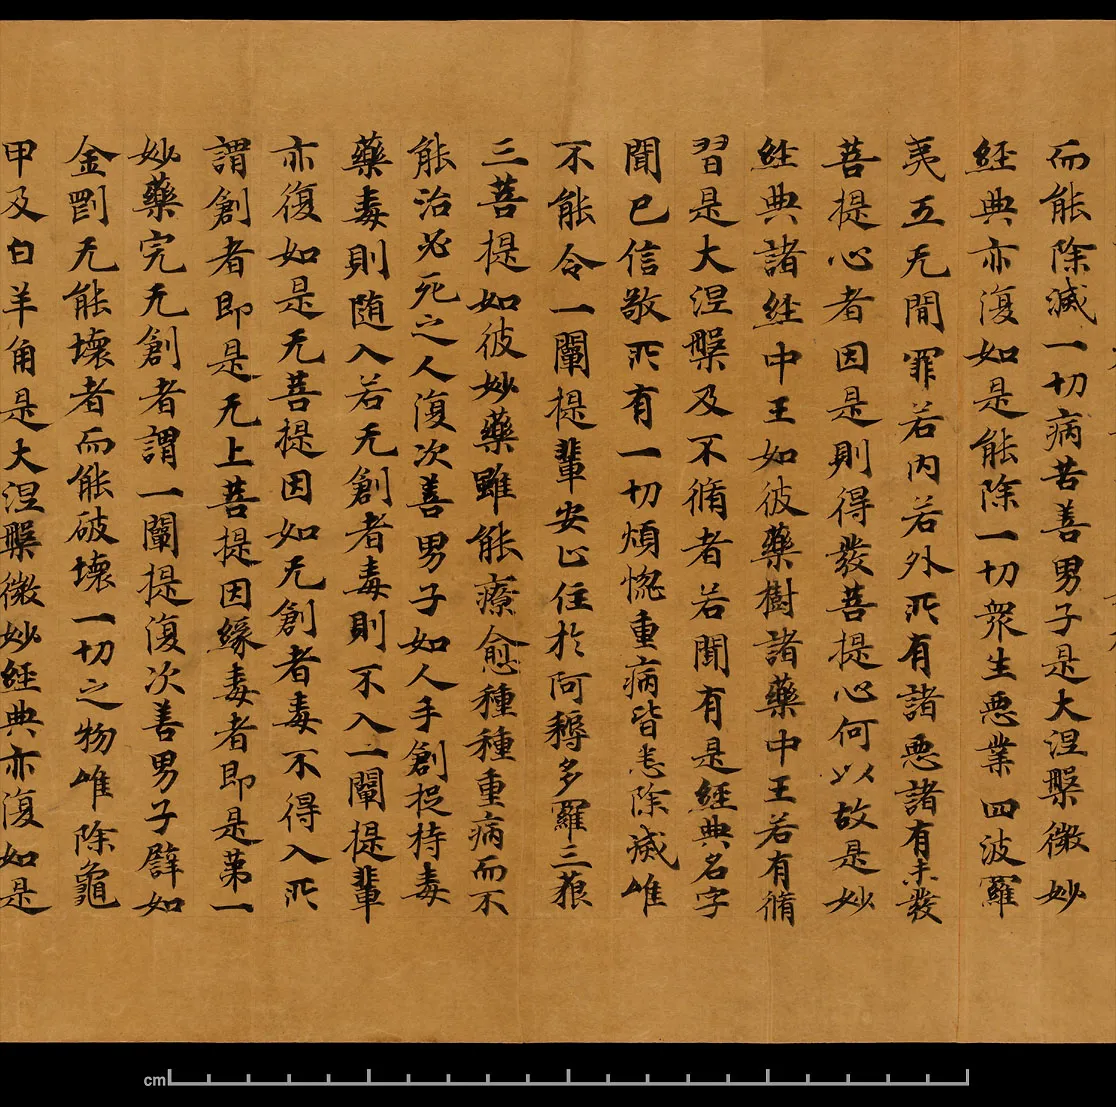 而能除滅一切病苦善男子是大涅槃微妙
經典亦復如是能除一切衆生惡業四波羅
夷五无間罪若内若外所有諸惡諸有未發
菩提心者因是則得發菩提心何以故是妙
經典諸經中王如彼藥樹諸藥中王若有脩
習是大涅槃及不脩者若聞有是經典名字
聞已信敬所有一切煩惱重病皆悉除滅唯
不能令一闡提輩安止住於阿耨多羅三藐
三菩提如彼妙藥雖能療愈種種重病而不
能治必死之人復次善男子如人手創捉持毒
藥毒則随入若无創者毒則不入一闡提輩
亦復如是无菩提因如无創者毒不得入所
謂創者即是无上菩提因緣毒者即是第一
妙藥完无創者謂一闡提復次善男子譬如
金剛无能壞者而能破壞一切之物唯除龜
甲及白羊角是大涅槃微妙經典亦復如是
cm